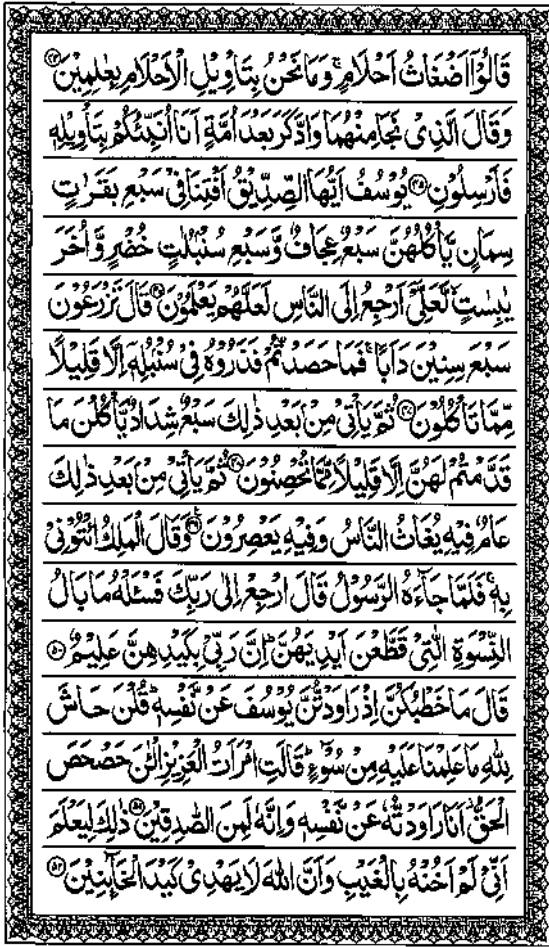 قَالُوْۤا اَضْغَاثُ اَحْلَامٍ ۚ وَمَا نَحْنُ بِتَاْوِیْلِ الْاَحْلَامِ بِعٰلِمِیْنَ ﴿۴۴﴾
وَقَالَ الَّذِیْ نَجَا مِنْهُمَا وَادَّكَرَ بَعْدَ اُمَّةٍ اَنَا اُنَبِّئُكُمْ بِتَاْوِیْلِهٖ
فَاَرْسِلُوْنِ ﴿۴۵﴾ یُوْسُفُ اَیُّهَا الصِّدِّیْقُ اَفْتِنَا فِیْ سَبْعِ بَقَرٰتٍ
سِمَانٍ یَّاْكُلُهُنَّ سَبْعٌ عِجَافٌ وَّسَبْعِ سُنْۢبُلٰتٍ خُضْرٍ وَّاُخَرَ
یٰبِسٰتٍ ۙ لَّعَلِّیْۤ اَرْجِعُ اِلَی النَّاسِ لَعَلَّهُمْ یَعْلَمُوْنَ ﴿۴۶﴾ قَالَ تَزْرَعُوْنَ
سَبْعَ سِنِیْنَ دَاَبًا ۚ فَمَا حَصَدْتُّمْ فَذَرُوْهُ فِیْ سُنْۢبُلِهٖۤ اِلَّا قَلِیْلًا
مِّمَّا تَاْكُلُوْنَ ﴿۴۷﴾ ثُمَّ یَاْتِیْ مِنْۢ بَعْدِ ذٰلِكَ سَبْعٌ شِدَادٌ یَّاْكُلْنَ مَا
قَدَّمْتُمْ لَهُنَّ اِلَّا قَلِیْلًا مِّمَّا تُحْصِنُوْنَ ﴿۴۸﴾ ثُمَّ یَاْتِیْ مِنْۢ بَعْدِ ذٰلِكَ
عَامٌ فِیْهِ یُغَاثُ النَّاسُ وَفِیْهِ یَعْصِرُوْنَ ﴿۴۹﴾ وَقَالَ الْمَلِكُ ائْتُوْنِیْ
بِهٖ ۚ فَلَمَّا جَآءَهُ الرَّسُوْلُ قَالَ ارْجِعْ اِلٰی رَبِّكَ فَسْـَٔلْهُ مَا بَالُ
النِّسْوَةِ الّٰتِیْ قَطَّعْنَ اَیْدِیَهُنَّ ؕ اِنَّ رَبِّیْ بِكَیْدِهِنَّ عَلِیْمٌ ﴿۵۰﴾
قَالَ مَا خَطْبُكُنَّ اِذْ رَاوَدْتُّنَّ یُوْسُفَ عَنْ نَّفْسِهٖ ؕ قُلْنَ حَاشَ
لِلّٰهِ مَا عَلِمْنَا عَلَیْهِ مِنْ سُوْٓءٍ ؕ قَالَتِ امْرَاَتُ الْعَزِیْزِ الْـٰٔنَ حَصْحَصَ
الْحَقُّ ؗ اَنَا رَاوَدْتُّهٗ عَنْ نَّفْسِهٖ وَاِنَّهٗ لَمِنَ الصّٰدِقِیْنَ ﴿۵۱﴾ ذٰلِكَ لِیَعْلَمَ
اَنِّیْ لَمْ اَخُنْهُ بِالْغَیْبِ وَاَنَّ اللّٰهَ لَا یَهْدِیْ كَیْدَ الْخَآئِنِیْنَ ﴿۵۲﴾